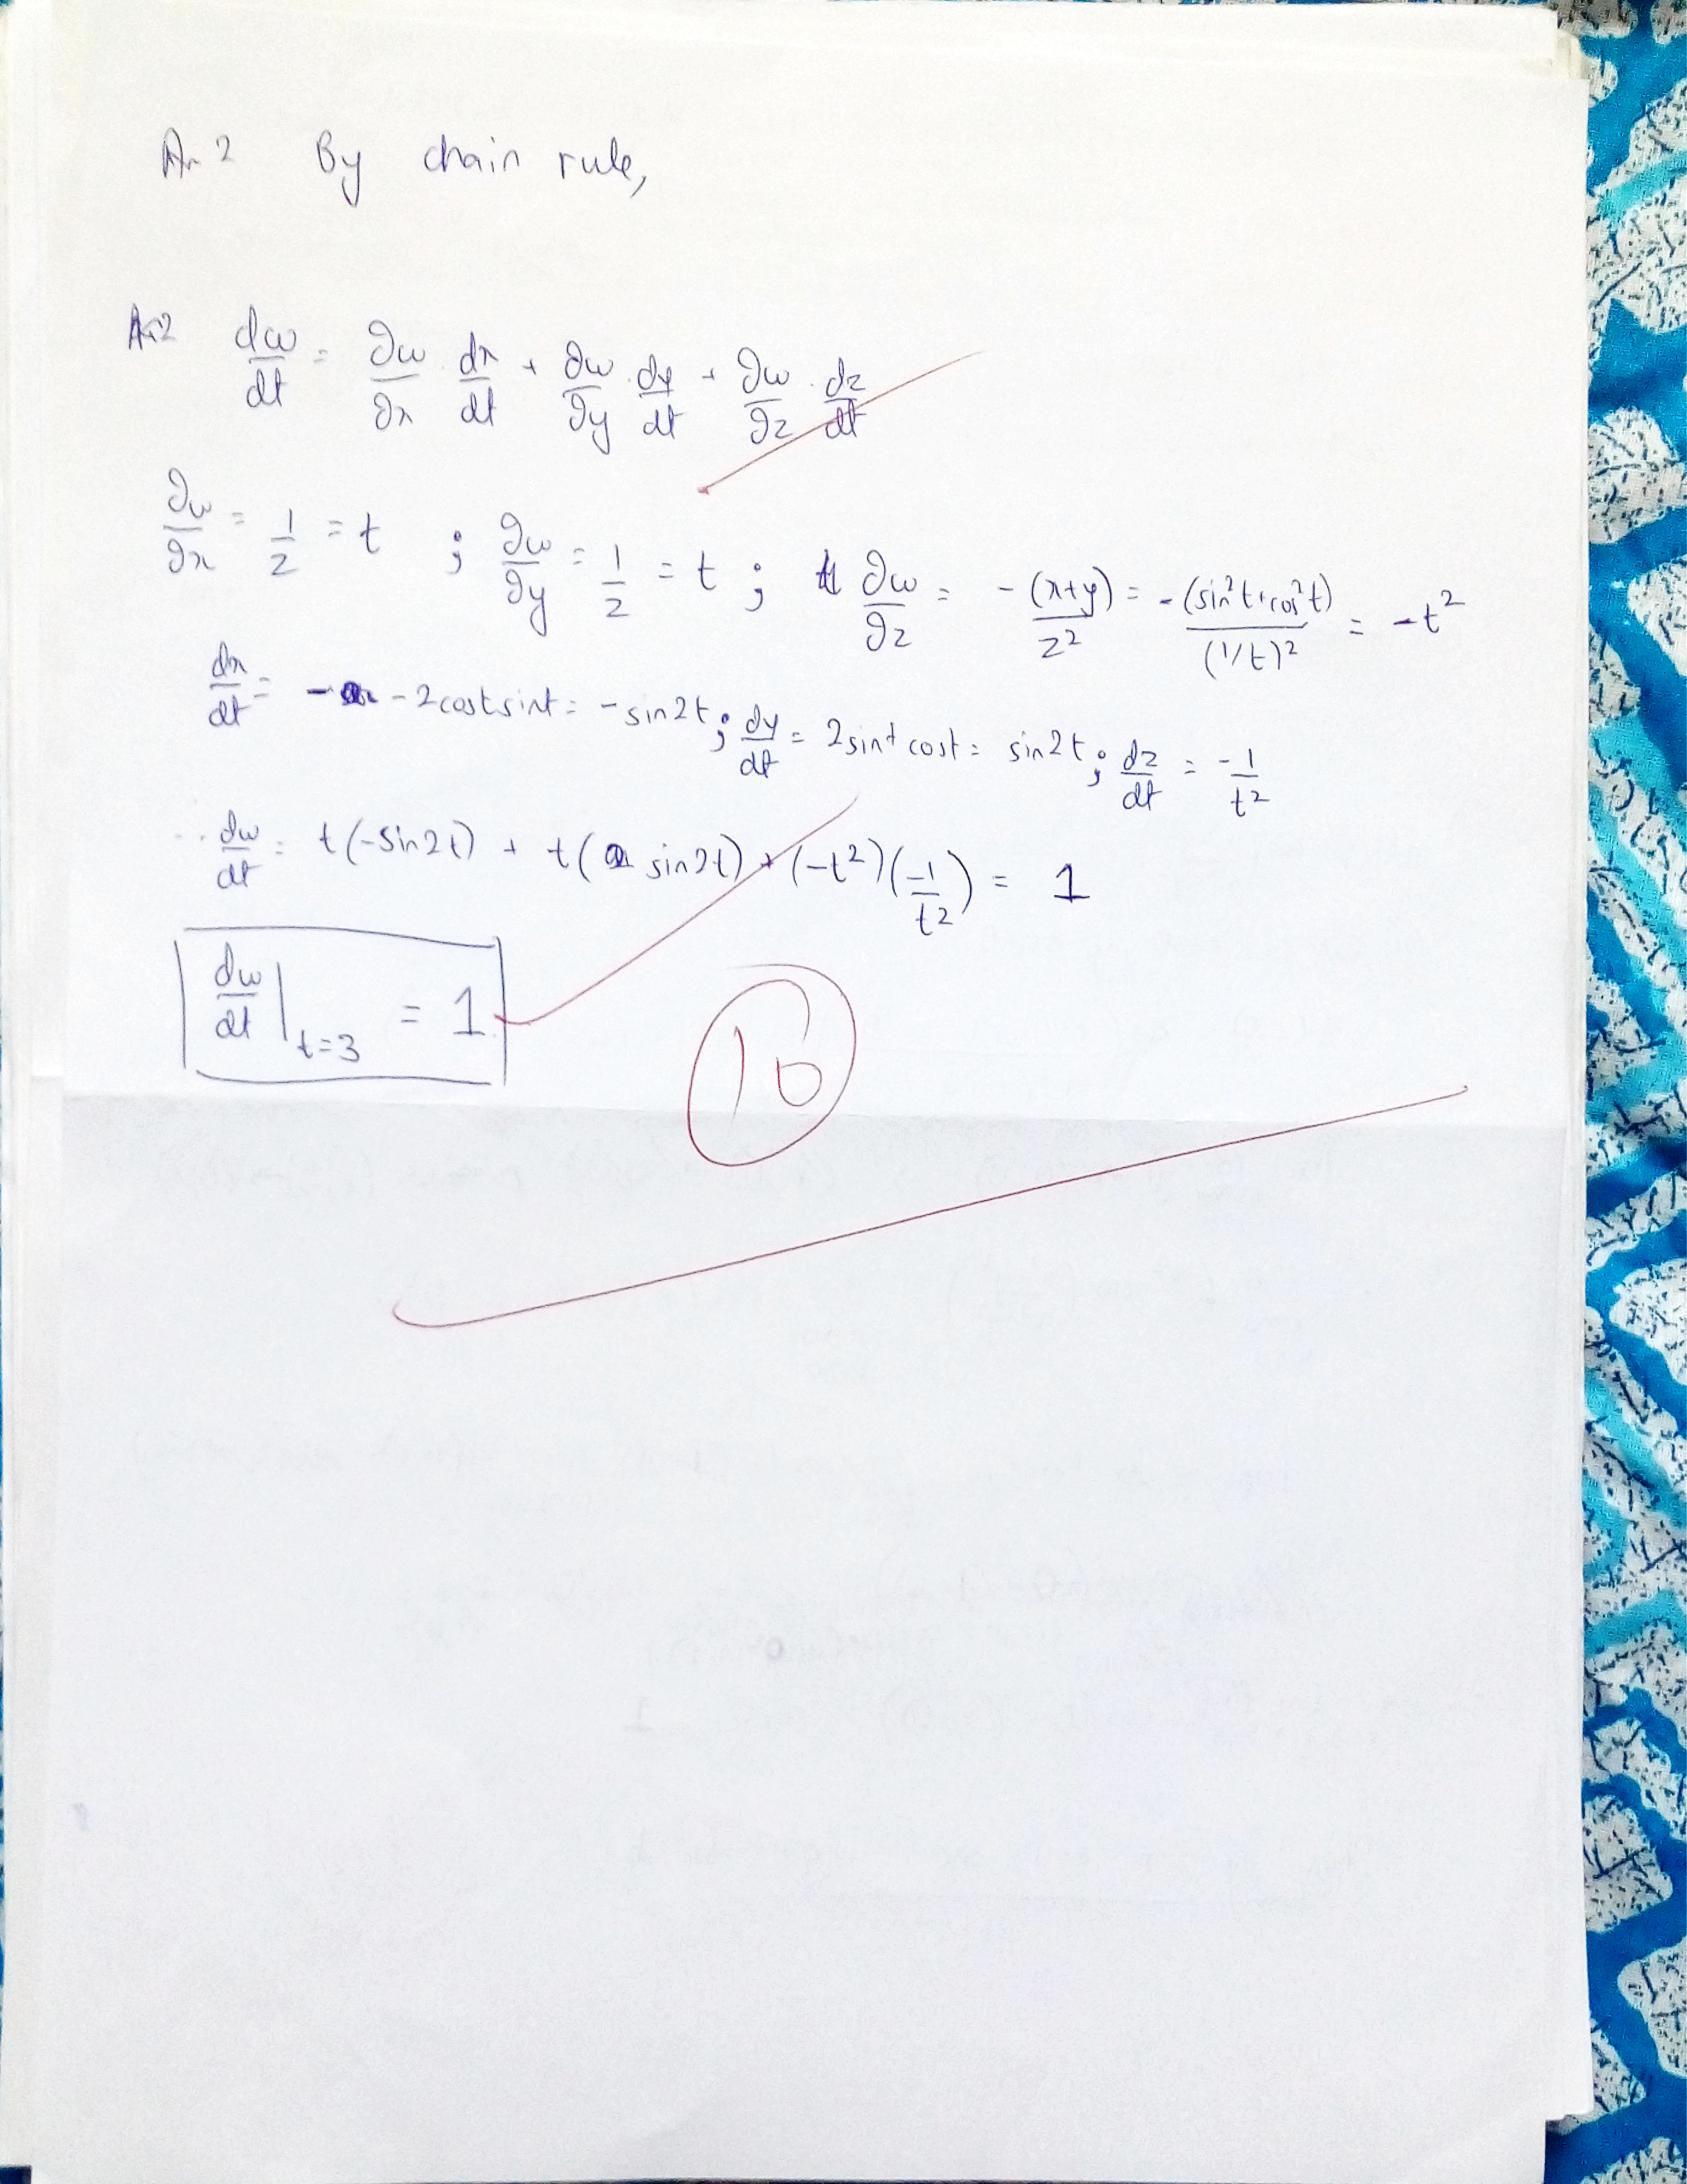 An 2 By chain rule,
An2 dw/dt = ∂w/∂x · dx/dt + ∂w/∂y · dy/dt + ∂w/∂z · dz/dt
∂w/∂x = 1/z = t ; ∂w/∂y = 1/z = t ; ∂w/∂z = -(x+y)/z² = -(sin²t+cos²t)/(1/t)² = -t²
dx/dt = -2costsint = -sin2t ; dy/dt = 2sint cost = sin2t ; dz/dt = -1/t²
∴ dw/dt = t(-sin2t) + t(sin2t) + (-t²)(-1/t²) = 1
dw/dt |t=3 = 1
10